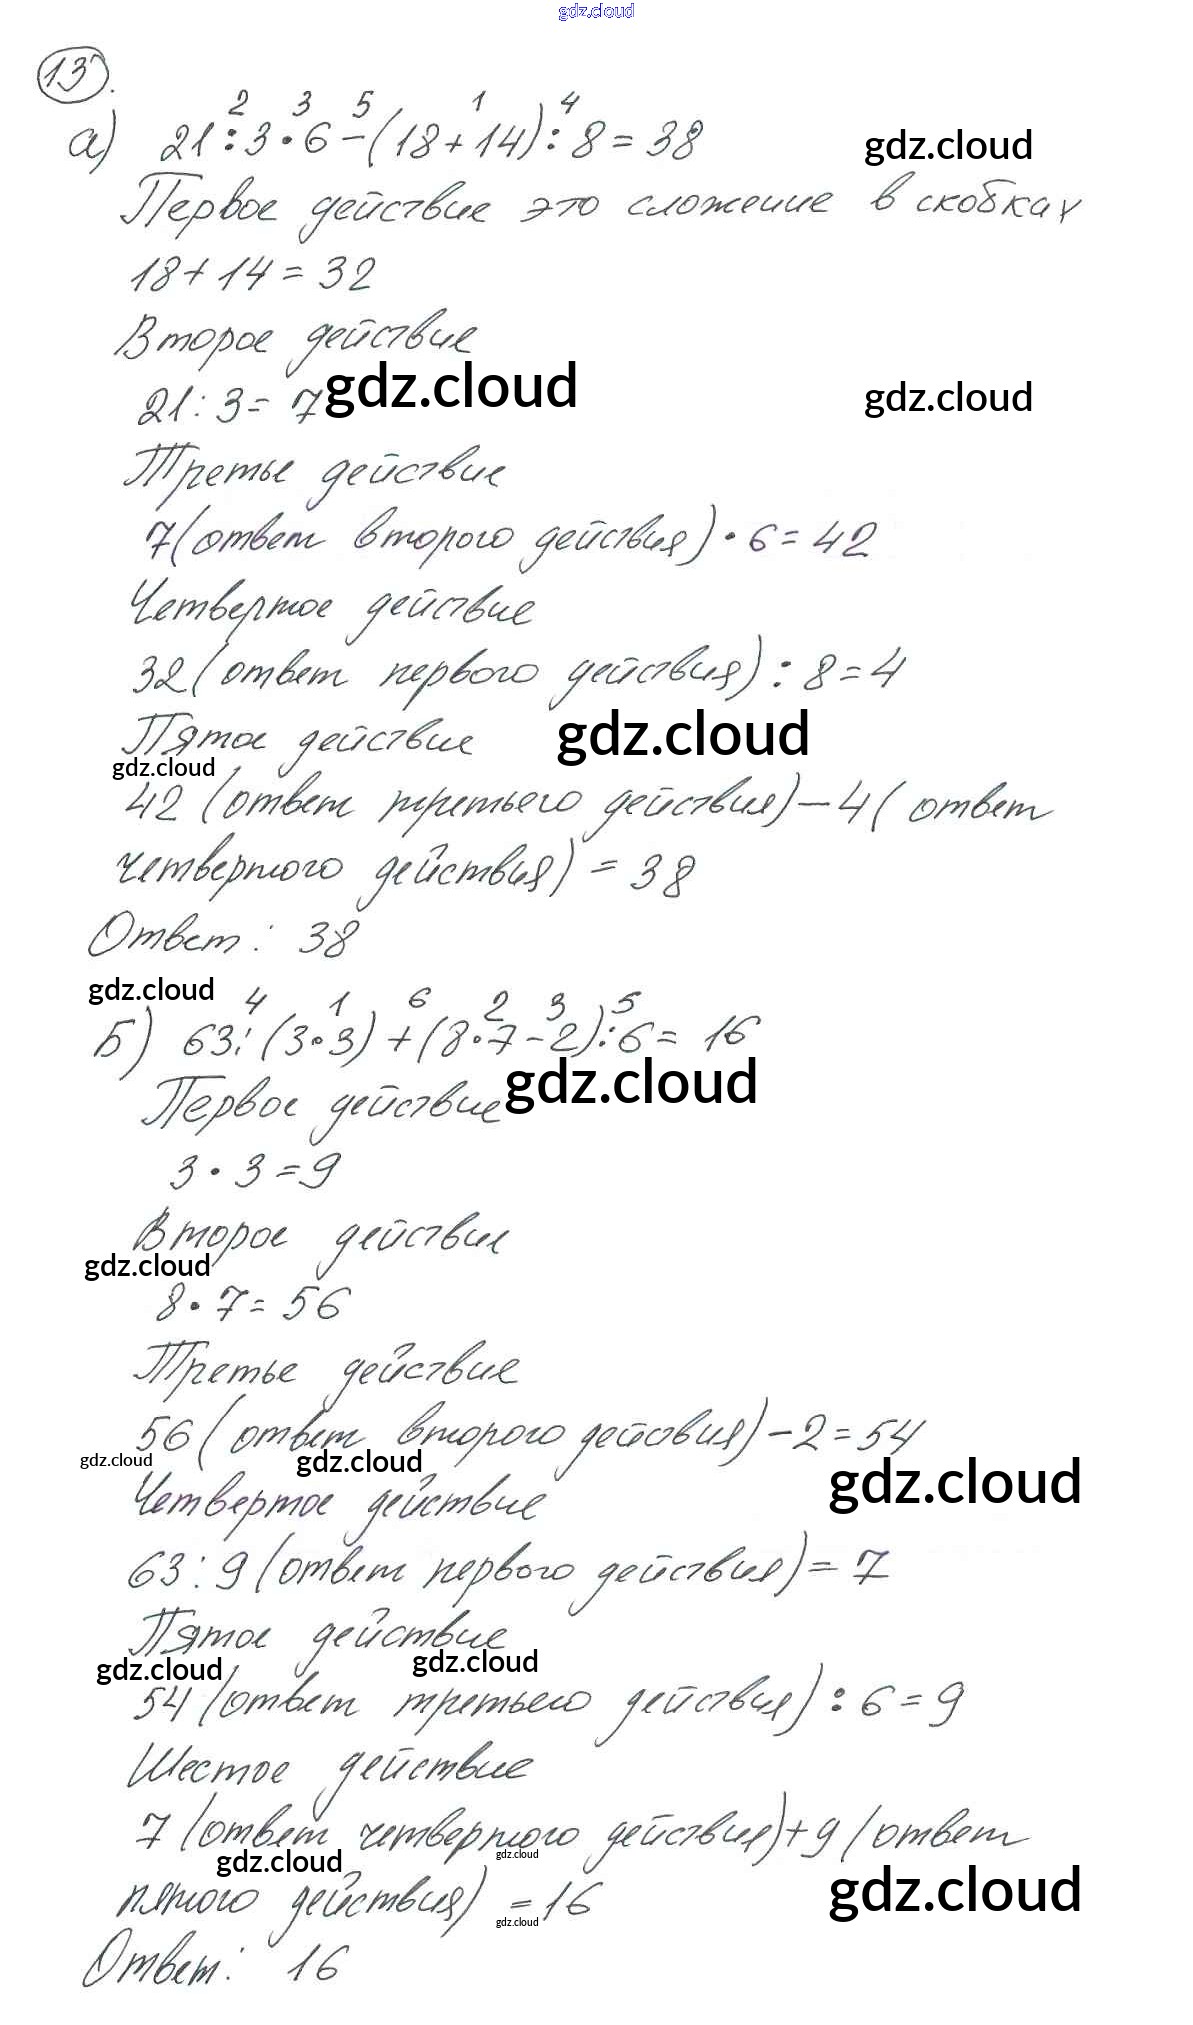 gdz.cloud
13.
2 3 5 1 4
а) 21 : 3 · 6 - (18 + 14) : 8 = 38
gdz.cloud
Первое действие это сложение в скобках
18 + 14 = 32
Второе действие
21 : 3 = 7
gdz.cloud
gdz.cloud
Третье действие
7 (ответ второго действия) · 6 = 42
Четвертое действие
32 (ответ первого действия) : 8 = 4
Пятое действие
gdz.cloud
gdz.cloud
42 (ответ третьего действия) - 4 (ответ
четвертого действия) = 38
Ответ: 38
gdz.cloud
4 1 6 2 3 5
Б) 63 : (3 · 3) + (8 · 7 - 2) : 6 = 16
gdz.cloud
Первое действие
3 · 3 = 9
Второе действие
gdz.cloud
8 · 7 = 56
Третье действие
56 (ответ второго действия) - 2 = 54
gdz.cloud
gdz.cloud
gdz.cloud
Четвертое действие
63 : 9 (ответ первого действия) = 7
Пятое действие
gdz.cloud
gdz.cloud
54 (ответ третьего действия) : 6 = 9
Шестое действие
7 (ответ четвертого действия) + 9 (ответ
gdz.cloud
gdz.cloud
gdz.cloud
пятого действия) = 16
gdz.cloud
Ответ: 16